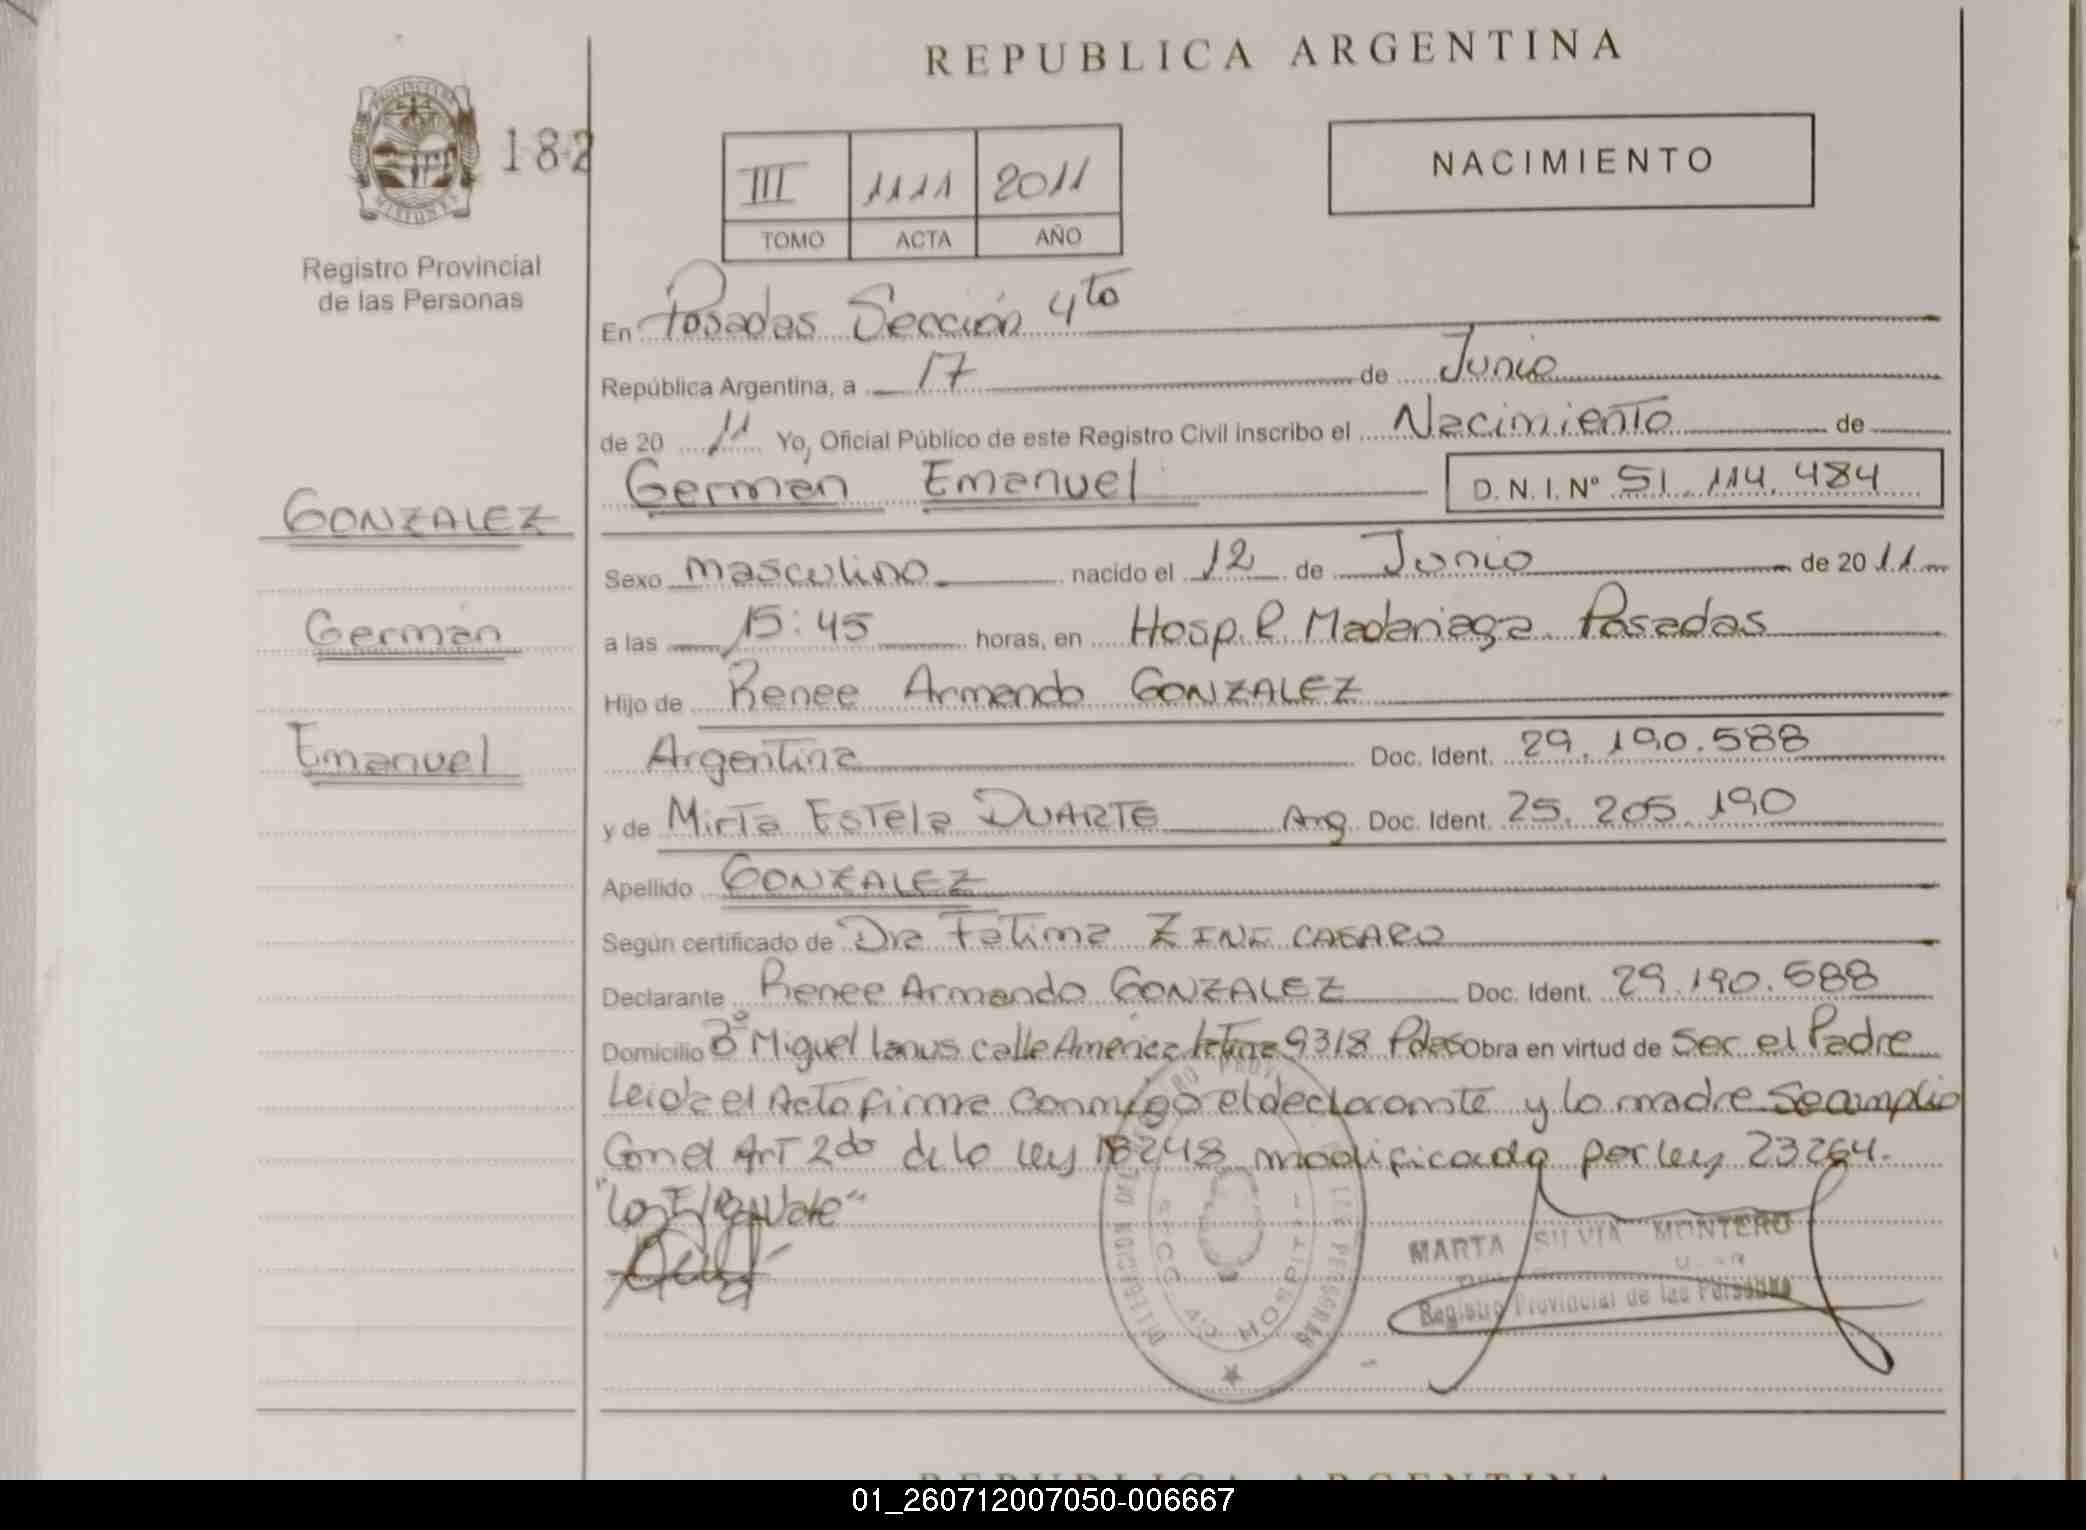 REPUBLICA ARGENTINA
PROVINCIA DE
MISIONES
182
Registro Provincial
de las Personas
III 1111 2011
TOMO ACTA AÑO
NACIMIENTO
En Posadas Sección 4to
República Argentina, a 17 de Junio
de 20 11 Yo, Oficial Público de este Registro Civil inscribo el Nacimiento de
Germán Emanuel D. N. I. Nº 51.114.484
GONZALEZ
Sexo masculino nacido el 12 de Junio de 20 11
Germán
a las 15:45 horas, en Hosp. R. Madariaga Posadas
Hijo de Renee Armando GONZALEZ
Emanuel
Argentina Doc. Ident. 29.190.588
y de Mirta Estela DUARTE Arg. Doc. Ident. 25.205.190
Apellido GONZALEZ
Según certificado de Dra Fatima ZINE CASARO
Declarante Renee Armando GONZALEZ Doc. Ident. 29.190.588
Domicilio Bº Miguel Lanus calle America latina 9318 Pdas Obra en virtud de Ser el Padre
Leida el Acta firma conmigo el declarante y la madre Se amplio
Con el Art 2do de la ley 18248 modificada por ley 23264.
Vale"
MARTA SILVIA MONTERO
Registro Provincial de las Personas
DIRECCION DEL REGISTRO PROV. DE LAS PERSONAS
SECC. 4º HOSPITAL
REPUBLICA ARGENTINA
01_260712007050-006667